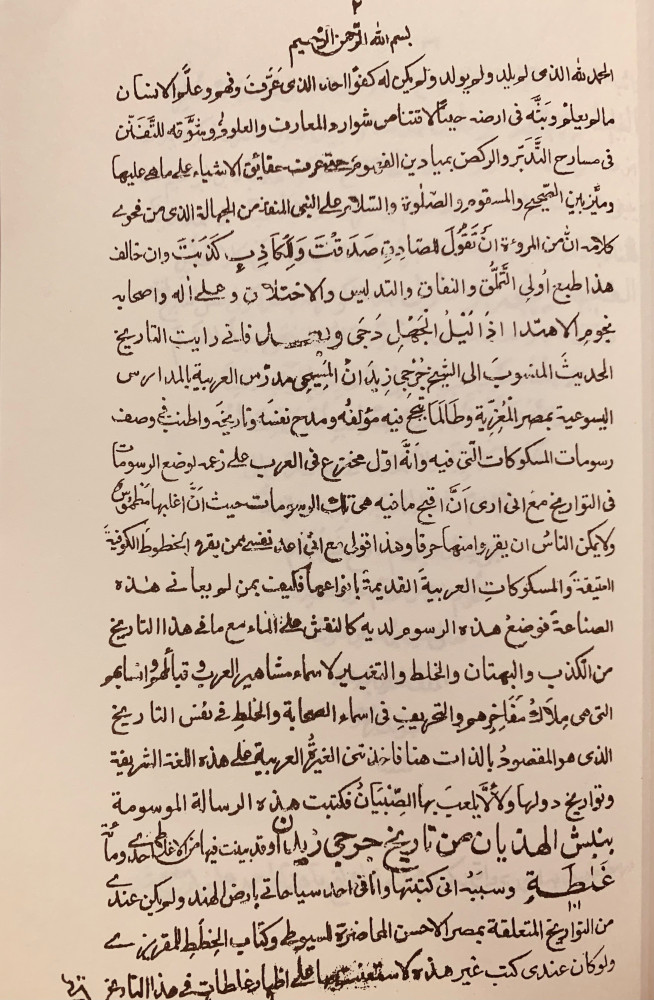 ٢
بسم الله الرحمن الرحيم
الحمد لله الذى لم يلد ولم يولد ولم يكن له كفوًا احد الذى عَرَّفَ وفهم وعلّم الانسان
مالم يعلم وبَثَّه فى ارضه حيثًا لاقتناص شوارد المعارف والعلوم وشوَّقه للتَّفَنّن
فى مسارح التَّدَبّر والركض بميادين الفهوم حتى عرف حقايق الاشياء على ماهى عليها
وميَّز بين الصّحيح والمسقوم والصّلوة والسّلام على النبى المنقذ من الجهالة الذى من فحوى
كلامه انّ من المروءة أنْ تَقُولَ للصّادق صَدَقْتَ وَلِلْكاذِبِ كَذَبْتَ وان خالف
هذا طبع اُولى التَّمَلُّق والنفاق والتدليس والاختلاق وعلى اٰله واصحابه
نجوم الاهتدا اذَا لَيْلُ الجَهْلِ دَجَى وبعد فانى رايت التاريخ
الحديثَ المنسوبَ الى الشّيخ جُرْجِي زيدَانْ المَسِيْحِى مدرّس العربية بالمدارس
اليسوعية بمصر المُعِزِّية وطَالَمَا بَجَّحَ فيه مؤلفُه ومدح نفسَه وتاريخَه واطنب فى وصف
رسومات المسكوكات الّتى فيه وَاَنَّه اوّل مخترع فى العرب على زعمه لوضع الرسومات
فى التواريخ مع انى ارى اَنَّ اقبح ما فيه هى تلك الرسومات حيث اَنَّ اغلبها مَطْمُوس
ولايمكن الناسُ ان يقروا منها حرفا وهذا اقوله مع انّى اعد نفسى بمن يقرء الخطوط الكوفيّة
العتيقةَ والمسكوكاتِ العربيةَ القديمةَ بانواعها فكيف بمن لم يعانى هٰذه
الصناعةَ فوضعُ هذه الرسوم لديه كالنقش على الماء مع مافى هذا التاريخ
من الكذب والبهتان والخلط والتغيير لاسماء مشاهير العرب و قبائلهم وانسابهم
التى هى مِلَاكُ مَفَاخِرِهم والتحريف فى اسماء الصحابة والخلط فى نفس التاريخ
الذى هو المقصودُ بالذات هنا فاخذتنى الغيرةُ العربية على هذه اللغة الشريفة
وتواريخ دولها ولألّا يلعبَ بها الصِّبْيَانُ فكتبت هذه الرسالة الموسومة
بنبش الهذيان من تاريخ جرجي زيدان وقد بينت فيها من الاغلاط احدى ومأة
غَلطَةٍ وسببه انى كتبتها وانا فى احد سياحاتى بارض الهند ولم يكن عندى
١٠١
من التواريخ المتعلقة بمصر الا حسن المحاضرة للسيوطى وكتاب الخِطَطِ للمقريزى
ولو كان عندى كتب غير هذه لاستعنت بها على اظهار غلطات فى هذا التاريخ